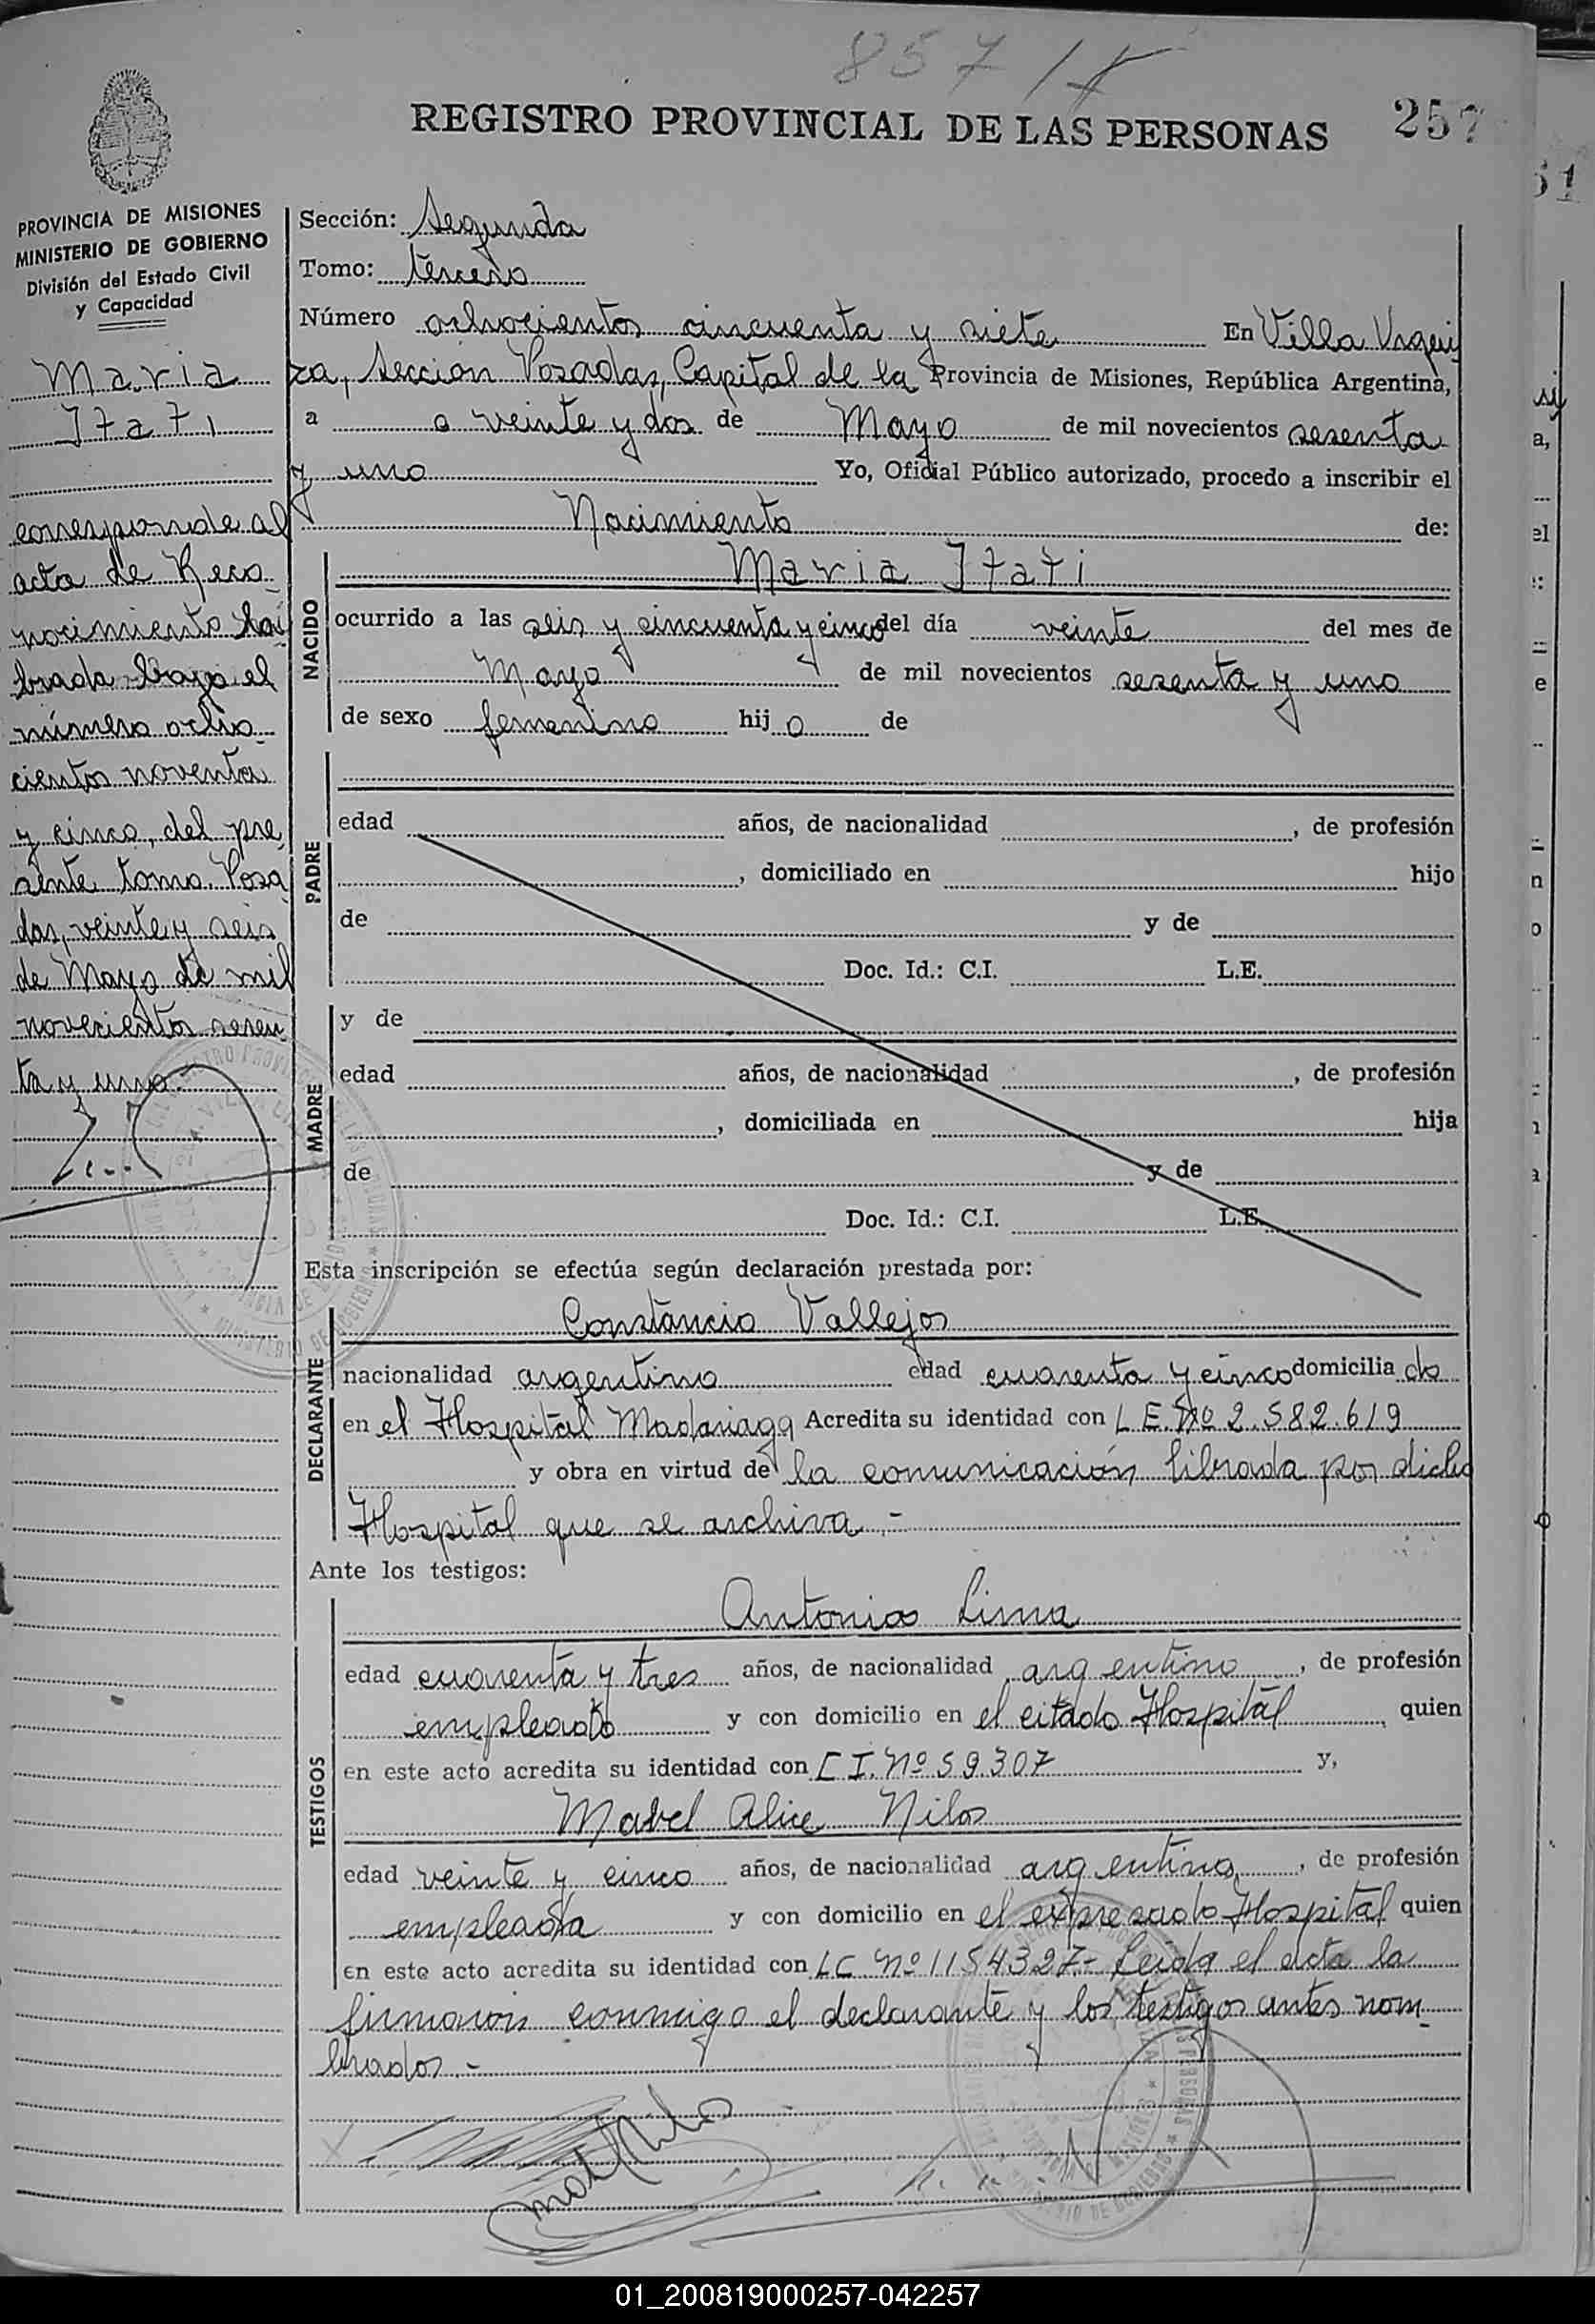 857
REGISTRO PROVINCIAL DE LAS PERSONAS
257
PROVINCIA DE MISIONES
MINISTERIO DE GOBIERNO
División del Estado Civil
y Capacidad
Maria
Itati
corresponde al
acta de Reco
nocimiento la
brada bajo el
número ocho
cientos noventa
y cinco, del pre
sente tomo. Posa
das, veinte y seis
de Mayo de mil
novecientos sesen
ta y uno.
Sección: Segunda
Tomo: tercero
Número ochocientos cincuenta y siete En Villa Urqui
za, Sección Posadas, Capital de la Provincia de Misiones, República Argentina,
a o veinte y dos de Mayo de mil novecientos sesenta
y uno Yo, Oficial Público autorizado, procedo a inscribir el
Nacimiento de:
NACIDO
Maria Itati
ocurrido a las seis y cincuenta y cinco del día veinte del mes de
Mayo de mil novecientos sesenta y uno
de sexo femenino hij o de
PADRE
edad años, de nacionalidad , de profesión
, domiciliado en hijo
de y de
Doc. Id.: C.I. L.E.
MADRE
y de
edad años, de nacionalidad , de profesión
, domiciliada en hija
de y de
Doc. Id.: C.I. L.E.
Esta inscripción se efectúa según declaración prestada por:
DECLARANTE
Constancio Vallejos
nacionalidad argentino edad cuarenta y cinco domicilia do
en el Hospital Madariaga Acredita su identidad con L.E. Nº 2.582.619
y obra en virtud de la comunicación librada por dicho
Hospital que se archiva.-
Ante los testigos:
TESTIGOS
Antonio Lima
edad cuarenta y tres años, de nacionalidad argentino, de profesión
empleado y con domicilio en el citado Hospital, quien
en este acto acredita su identidad con C.I. Nº 59.307 y,
Mabel Alice Nilos
edad veinte y cinco años, de nacionalidad argentina, de profesión
empleada y con domicilio en el expresado Hospital quien
en este acto acredita su identidad con LC Nº 1154327.- Leída el acta la
firmaron conmigo el declarante y los testigos antes nom
brados.-
01_200819000257-042257